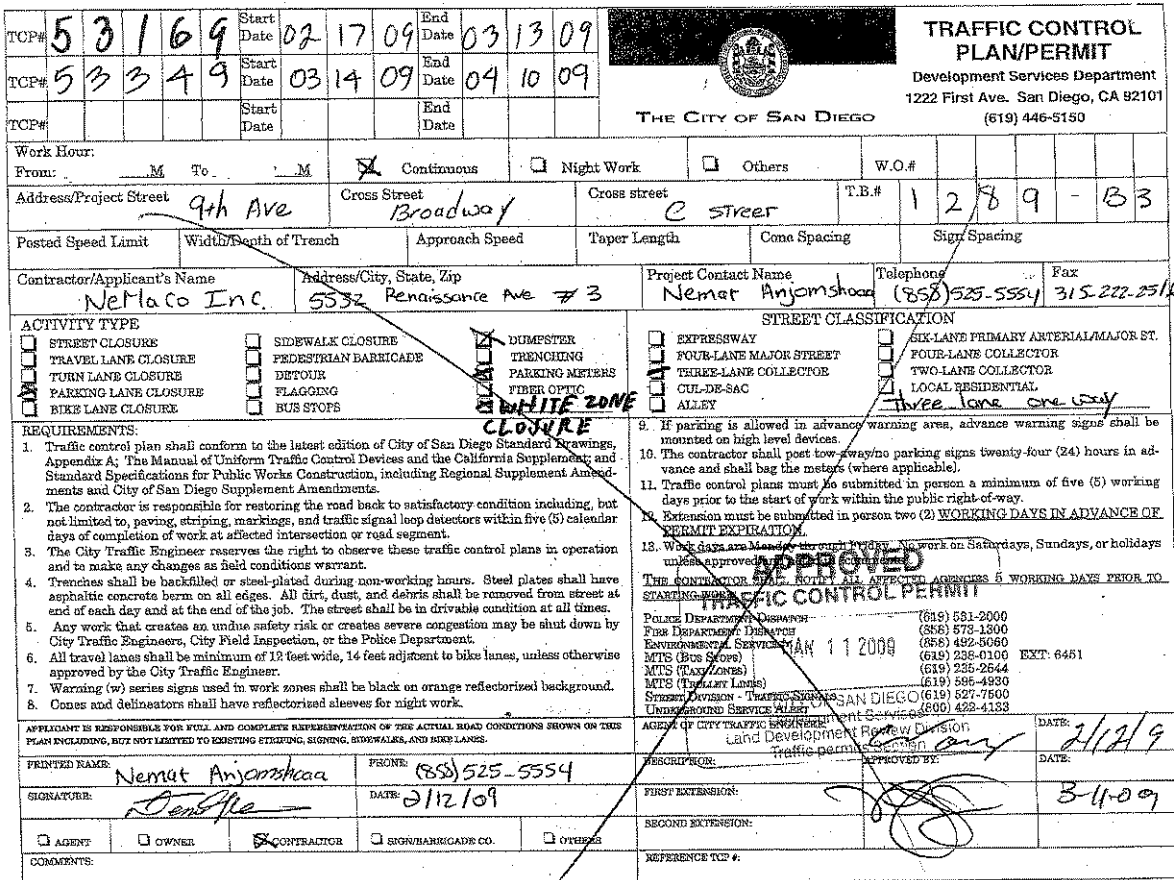 TCP# 5 3 1 6 9 Start Date 02 17 09 End Date 03 13 09
TCP# 5 3 3 4 9 Start Date 03 14 09 End Date 04 10 09
TCP# Start Date End Date
THE CITY OF SAN DIEGO
TRAFFIC CONTROL
PLAN/PERMIT
Development Services Department
1222 First Ave. San Diego, CA 92101
(619) 446-5150
Work Hour:
From: M To M Continuous Night Work Others W.O.#
Address/Project Street 9th Ave Cross Street Broadway Cross street C street T.B.# 1 2 8 9 - B 3
Posted Speed Limit Width/Depth of Trench Approach Speed Taper Length Cone Spacing Sign Spacing
Contractor/Applicant's Name Address/City, State, Zip Project Contact Name Telephone Fax
NeMaCo Inc. 5532 Renaissance Ave #3 Nemat Anjomshoaa (858)525-5554 315-222-251
ACTIVITY TYPE
STREET CLOSURE SIDEWALK CLOSURE DUMPSTER
TRAVEL LANE CLOSURE PEDESTRIAN BARRICADE TRENCHING
TURN LANE CLOSURE DETOUR PARKING METERS
PARKING LANE CLOSURE FLAGGING FIBER OPTIC
BIKE LANE CLOSURE BUS STOPS WHITE ZONE
CLOSURE
STREET CLASSIFICATION
EXPRESSWAY SIX-LANE PRIMARY ARTERIAL/MAJOR ST.
FOUR-LANE MAJOR STREET FOUR-LANE COLLECTOR
THREE-LANE COLLECTOR TWO-LANE COLLECTOR
CUL-DE-SAC LOCAL RESIDENTIAL
ALLEY Three lane one way
REQUIREMENTS:
1. Traffic control plan shall conform to the latest edition of City of San Diego Standard Drawings,
Appendix A; The Manual of Uniform Traffic Control Devices and the California Supplement; and
Standard Specifications for Public Works Construction, including Regional Supplement Amend-
ments and City of San Diego Supplement Amendments.
2. The contractor is responsible for restoring the road back to satisfactory condition including, but
not limited to, paving, striping, markings, and traffic signal loop detectors within five (5) calendar
days of completion of work at affected intersection or road segment.
3. The City Traffic Engineer reserves the right to observe these traffic control plans in operation
and to make any changes as field conditions warrant.
4. Trenches shall be backfilled or steel-plated during non-working hours. Steel plates shall have
asphaltic concrete berm on all edges. All dirt, dust, and debris shall be removed from street at
end of each day and at the end of the job. The street shall be in drivable condition at all times.
5. Any work that creates an undue safety risk or creates severe congestion may be shut down by
City Traffic Engineers, City Field Inspection, or the Police Department.
6. All travel lanes shall be minimum of 12 feet wide, 14 feet adjacent to bike lanes, unless otherwise
approved by the City Traffic Engineer.
7. Warning (w) series signs used in work zones shall be black on orange reflectorized background.
8. Cones and delineators shall have reflectorized sleeves for night work.
9. If parking is allowed in advance warning area, advance warning signs shall be
mounted on high level devices.
10. The contractor shall post tow-away/no parking signs twenty-four (24) hours in ad-
vance and shall bag the meters (where applicable).
11. Traffic control plans must be submitted in person a minimum of five (5) working
days prior to the start of work within the public right-of-way.
12. Extension must be submitted in person two (2) WORKING DAYS IN ADVANCE OF
PERMIT EXPIRATION.
13. Work days are Monday through Friday. No work on Saturdays, Sundays, or holidays
unless approved
APPROVED
THE CONTRACTOR SHALL NOTIFY ALL AFFECTED AGENCIES 5 WORKING DAYS PRIOR TO
STARTING WORK
TRAFFIC CONTROL PERMIT
POLICE DEPARTMENT DISPATCH (619) 531-2000
FIRE DEPARTMENT DISPATCH (858) 573-1300
ENVIRONMENTAL SERVICES (858) 492-5060
MAR 11 2009
MTS (BUS STOPS) (619) 238-0100 EXT: 6451
MTS (TAXI ZONES) (619) 235-2644
MTS (TROLLEY LINES) (619) 595-4930
STREET DIVISION - TRAFFIC SIGNALS (619) 527-7500
UNDERGROUND SERVICE ALERT (800) 422-4133
CITY OF SAN DIEGO
Development Services
Land Development Review Division
Traffic permits Section
APPLICANT IS RESPONSIBLE FOR FULL AND COMPLETE REPRESENTATION OF THE ACTUAL ROAD CONDITIONS SHOWN ON THIS
PLAN INCLUDING, BUT NOT LIMITED TO EXISTING STRIPING, SIGNING, SIDEWALKS, AND BIKE LANES.
AGENT OF CITY TRAFFIC ENGINEER: DATE: 2/12/9
PRINTED NAME: Nemat Anjomshoaa PHONE: (858)525-5554
DESCRIPTION: APPROVED BY: DATE:
SIGNATURE: DATE: 2/12/09
FIRST EXTENSION: 3-11-09
SECOND EXTENSION:
AGENT OWNER CONTRACTOR SIGN/BARRICADE CO. OTHERS
COMMENTS:
REFERENCE TCP #: